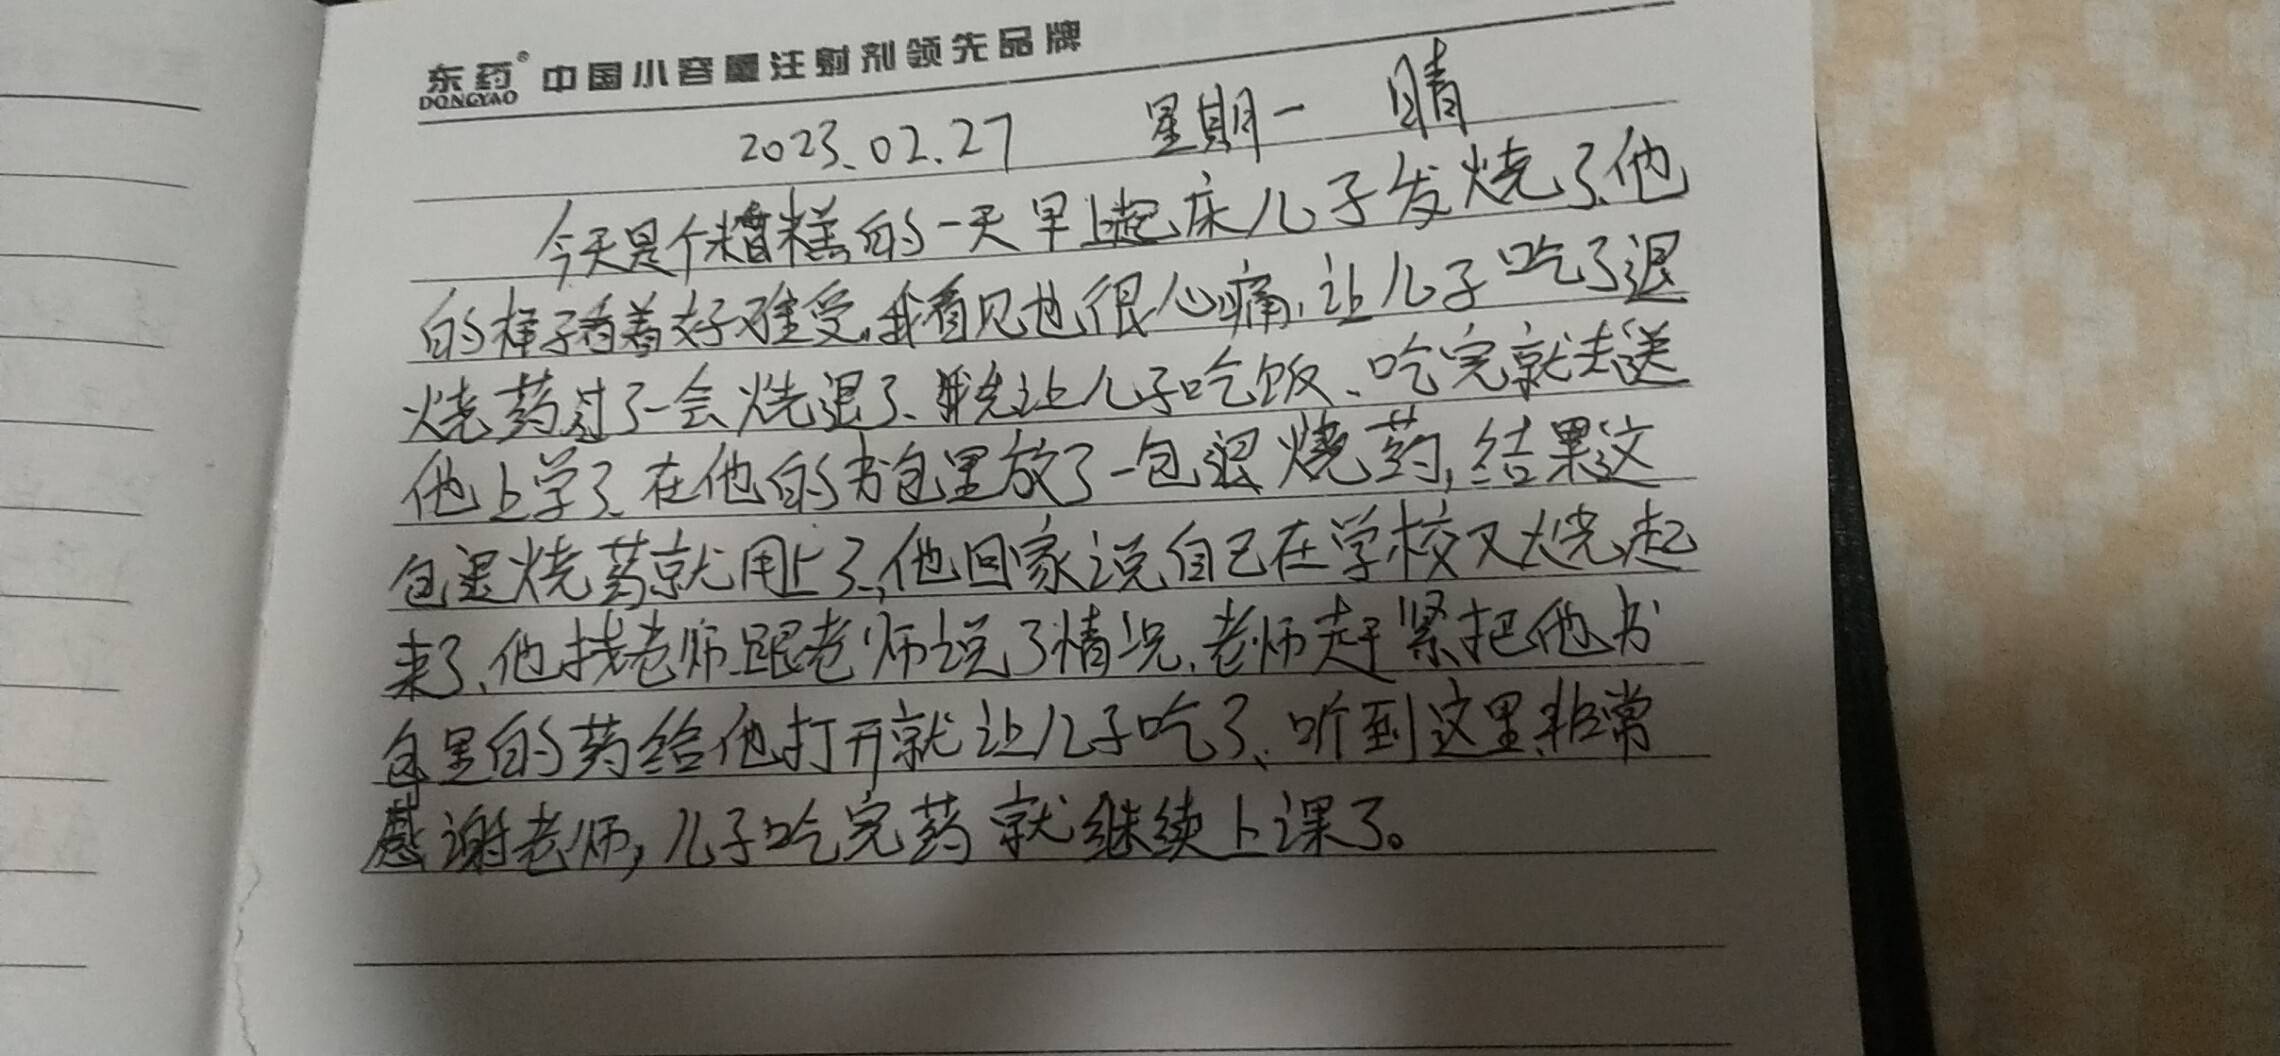 东药® 中国小容量注射剂领先品牌
DONGYAO
2023.02.27 星期一 晴
今天是个糟糕的一天早上起床儿子发烧了、他
的样子看着好难受,我看见也很心痛,让儿子吃了退
烧药过了一会烧退了、我先让儿子吃饭、吃完就去送
他上学了、在他的书包里放了一包退烧药,结果这
包退烧药就用上了,他回家说自己在学校又烧起
来了、他找老师跟老师说了情况、老师赶紧把他书
包里的药给他打开就让儿子吃了、听到这里非常
感谢老师,儿子吃完药就继续上课了。